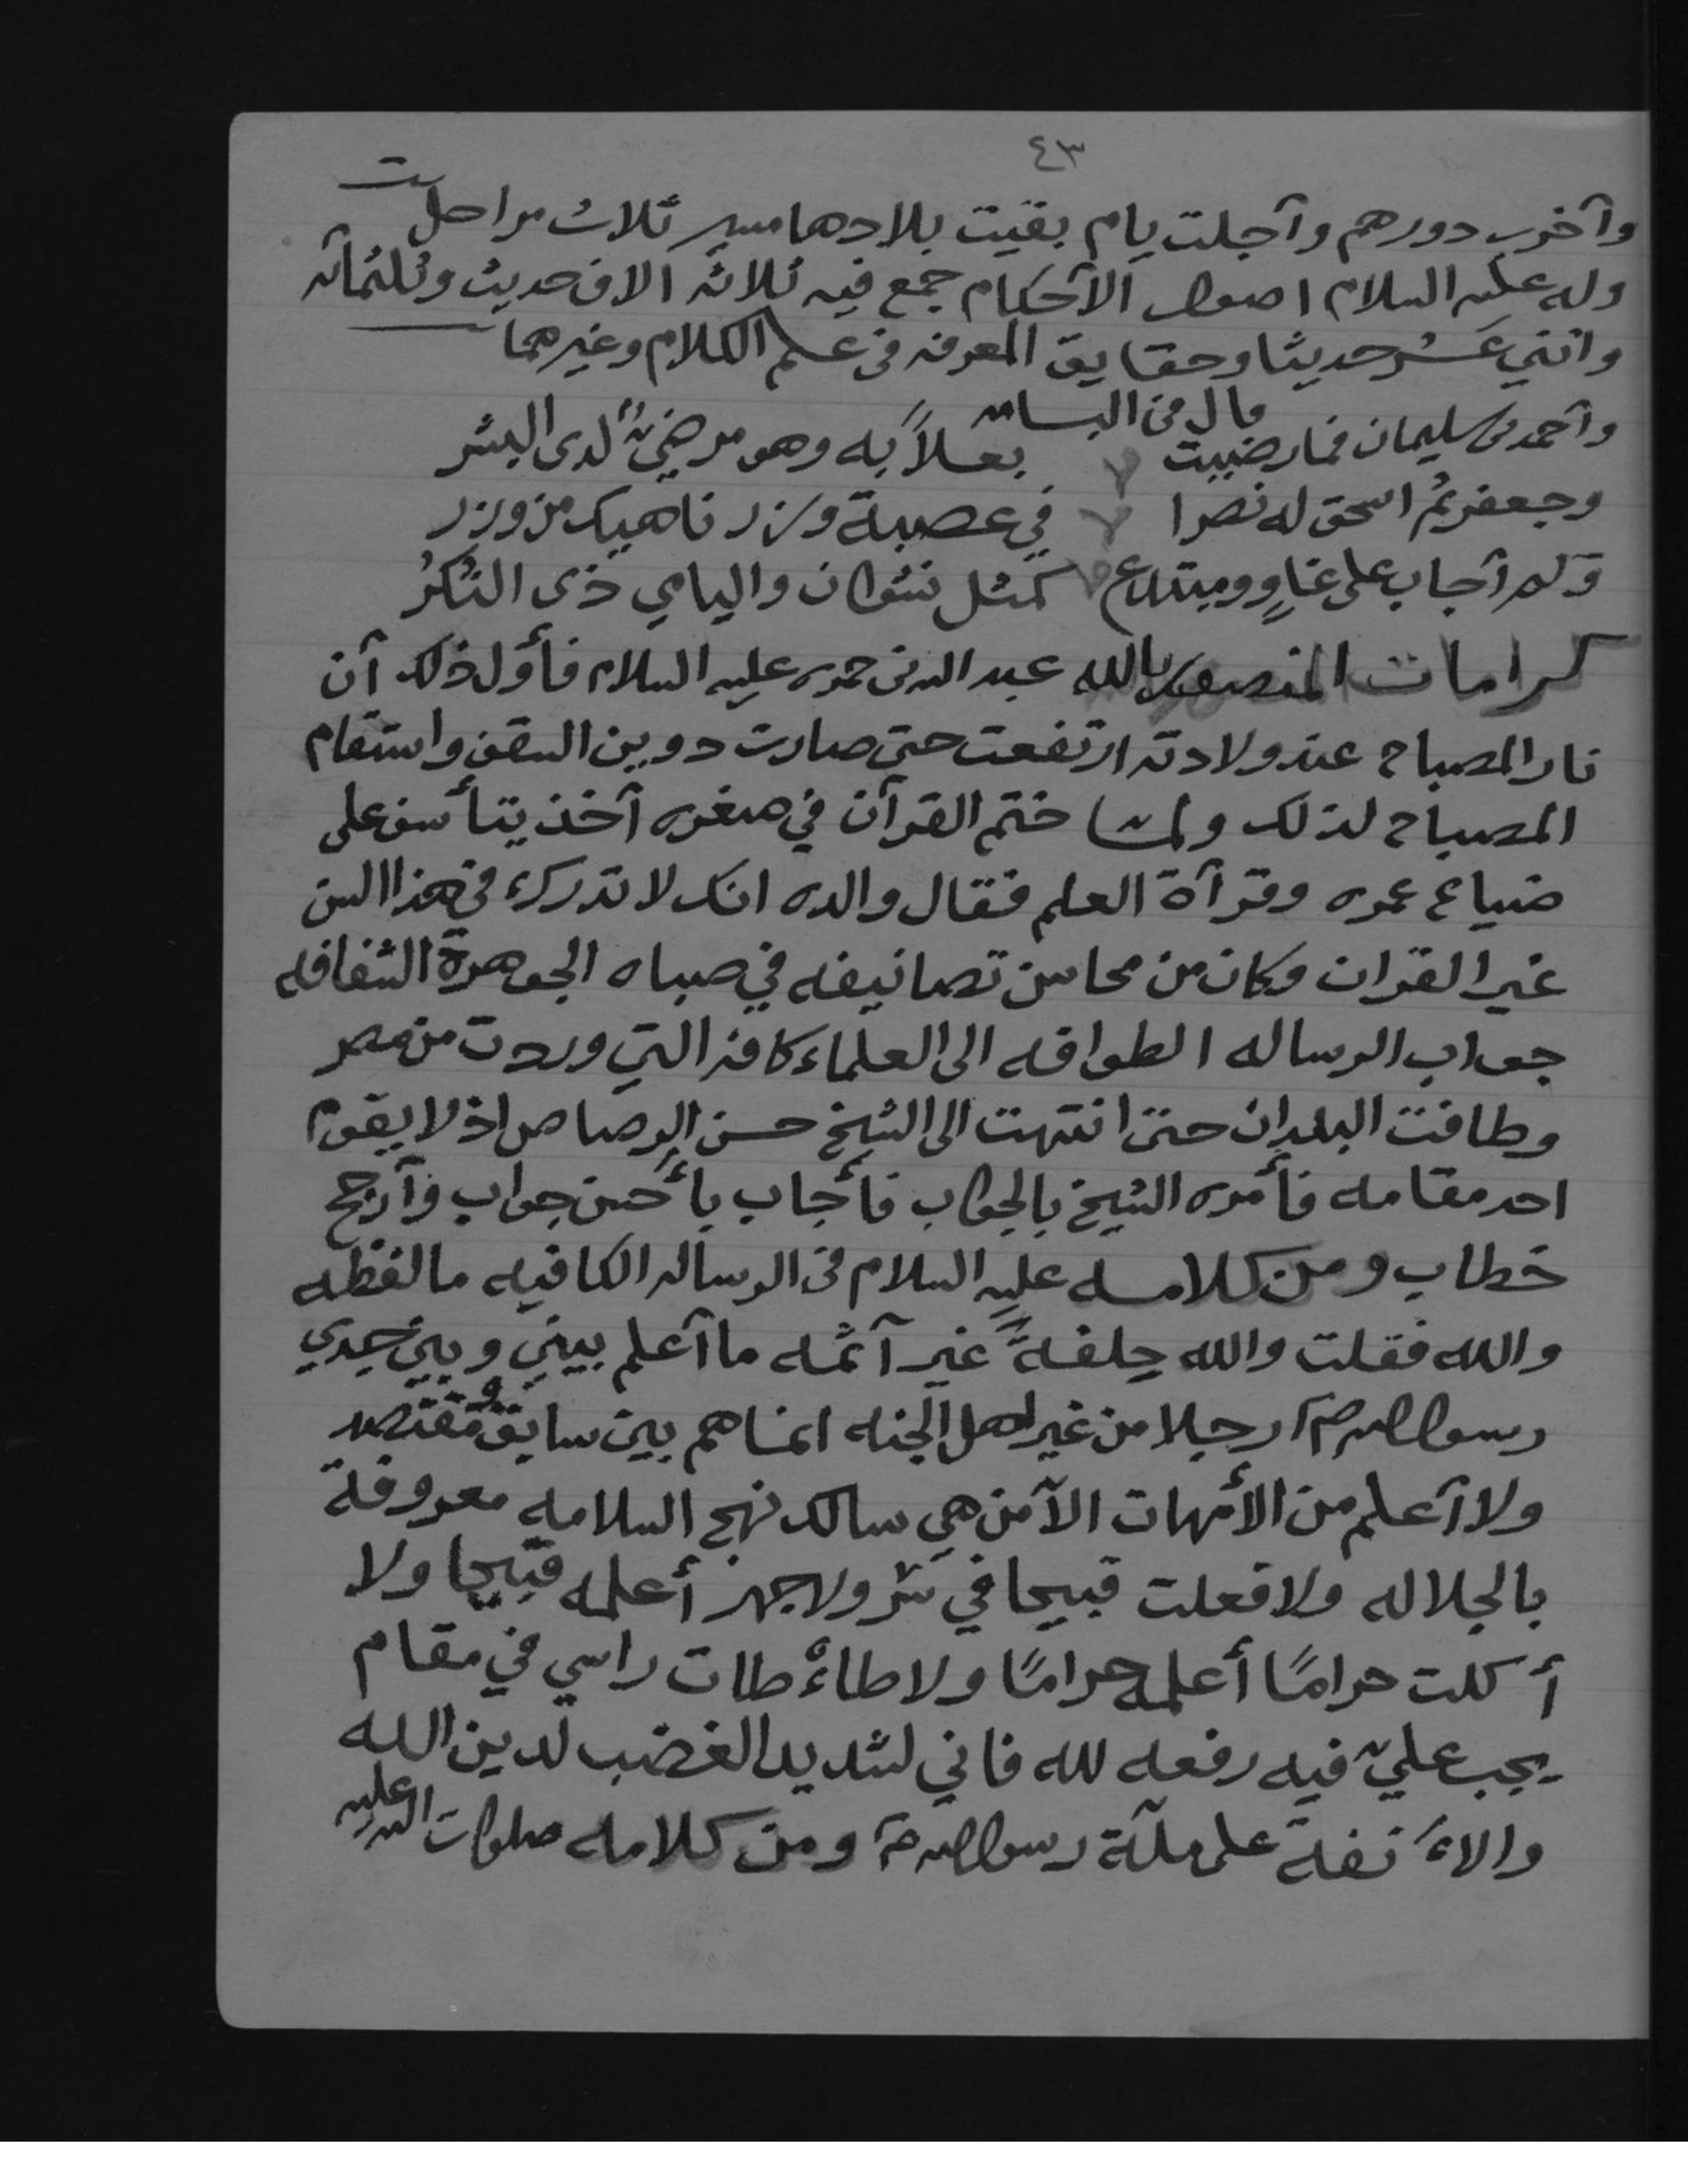 ٤٣
وآخرب دورهم وآجلت يام بقيت بلادها مسير ثلاث مراحل ت
وله عليه السلام اصول الآحكام جمع فيه ثلاثه الاف حديث وثلثمآئه
واثني عشر حديثا وحقايق المعرفه فى علم الكلام وغيرهما
قال في البسامه
وآحمد بن سليمان فما رضيت بعلاً به وهو مرضيٌ لدى البشر
وجعفر ثم اسحق له نصرا في عصبة وزر ناهيك من وزر
وكم آجاب على غاوٍ ومبتدع كمثل نشوان واليامي ذى النُكُر
كرامات المنصور بالله عبد الله بن حمزه عليه السلام فأول ذلك آن
نار المصباح عند ولادته ارتفعت حتى صارت دوين السقف واستقام
المصباح لذلك ولما ختم القرآن في صغره آخذ يتأسف على
ضياع عمره وقرآة العلم فقال والده انك لا تدرك فى هذا السن
غير القران وكان من محاسن تصانيفه في صباه الجوهرة الشفافه
جواب الرساله الطوافه الى العلماء كافه التي وردت من مصر
وطافت البلدان حتى انتهت الى الشيخ حسن الرصاص اذ لا يقوم
احد مقامه فأمره الشيخ بالجواب فأجاب بأحسن جواب وآرجح
خطاب ومن كلامه عليه السلام فى الرساله الكافيه ما لفظه
والله فقلت والله حلفةً غير آثمه ما آعلم بيني وبين جدي
رسول الله صم رجلا من غير اهل الجنه انما هم بين سابق ومقتصد
ولا آعلم من الأمهات الآ من هي سالكه نهج السلامه معروفة
بالجلاله ولا فعلت قبيحا في سر ولا جهر أعلمه قبيحا ولا
أكلت حرامًا أعلمه حرامًا ولا طاءطات راسي في مقام
يجب عليّ فيه رفعه لله فاني لشديد الغضب لدين الله
والاءنفة على ملّة رسول الله صم ومن كلامه صلوات الله عليه